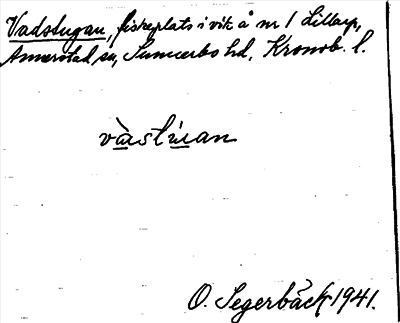 Vadstugan, fiskeplats i vik å nr 1 Lillarp,
Annerstad sn, Sunnerbo hd, Kronob. l.
vàstúan
O. Segerbäck 1941.